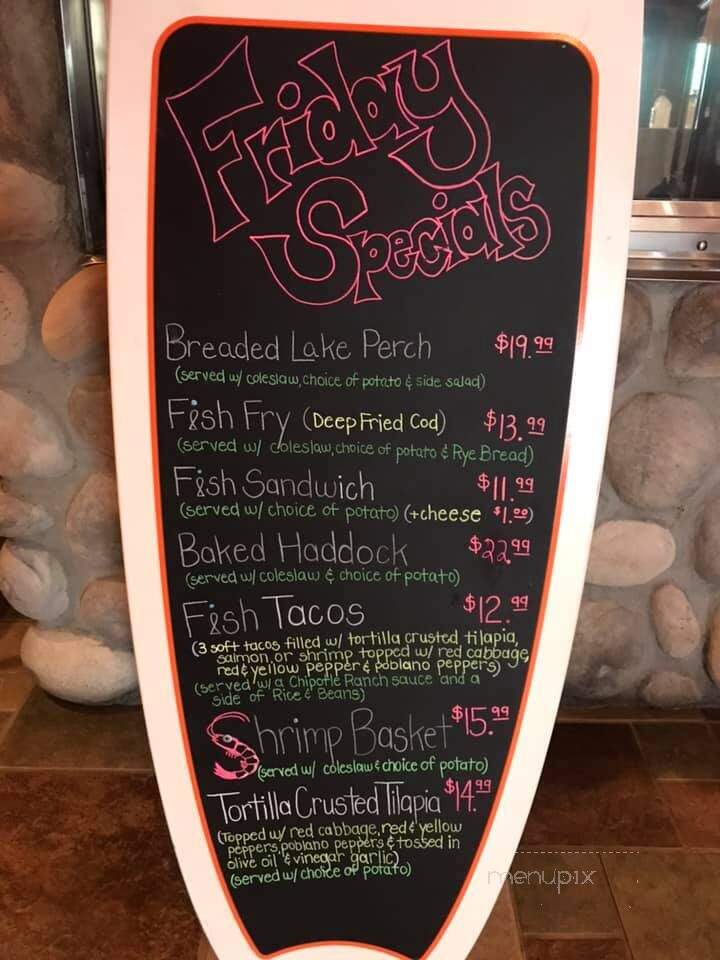 Friday
Specials
Breaded Lake Perch $19.99
(served w/ coleslaw, choice of potato & side salad)
Fish Fry (Deep Fried Cod) $13.99
(served w/ coleslaw, choice of potato & Rye Bread)
Fish Sandwich $11.99
(served w/ choice of potato) (+cheese $1.00)
Baked Haddock $22.99
(served w/ coleslaw & choice of potato)
Fish Tacos $12.99
(3 soft tacos filled w/ tortilla crusted tilapia,
salmon, or shrimp topped w/ red cabbage,
red & yellow pepper & poblano peppers)
(served w/ a Chipotle Ranch sauce and a
side of Rice & Beans)
Shrimp Basket $15.99
(served w/ coleslaw & choice of potato)
Tortilla Crusted Tilapia $14.99
(Topped w/ red cabbage, red & yellow
peppers, poblano peppers & tossed in
olive oil & vinegar garlic)
(served w/ choice of potato)
menupix